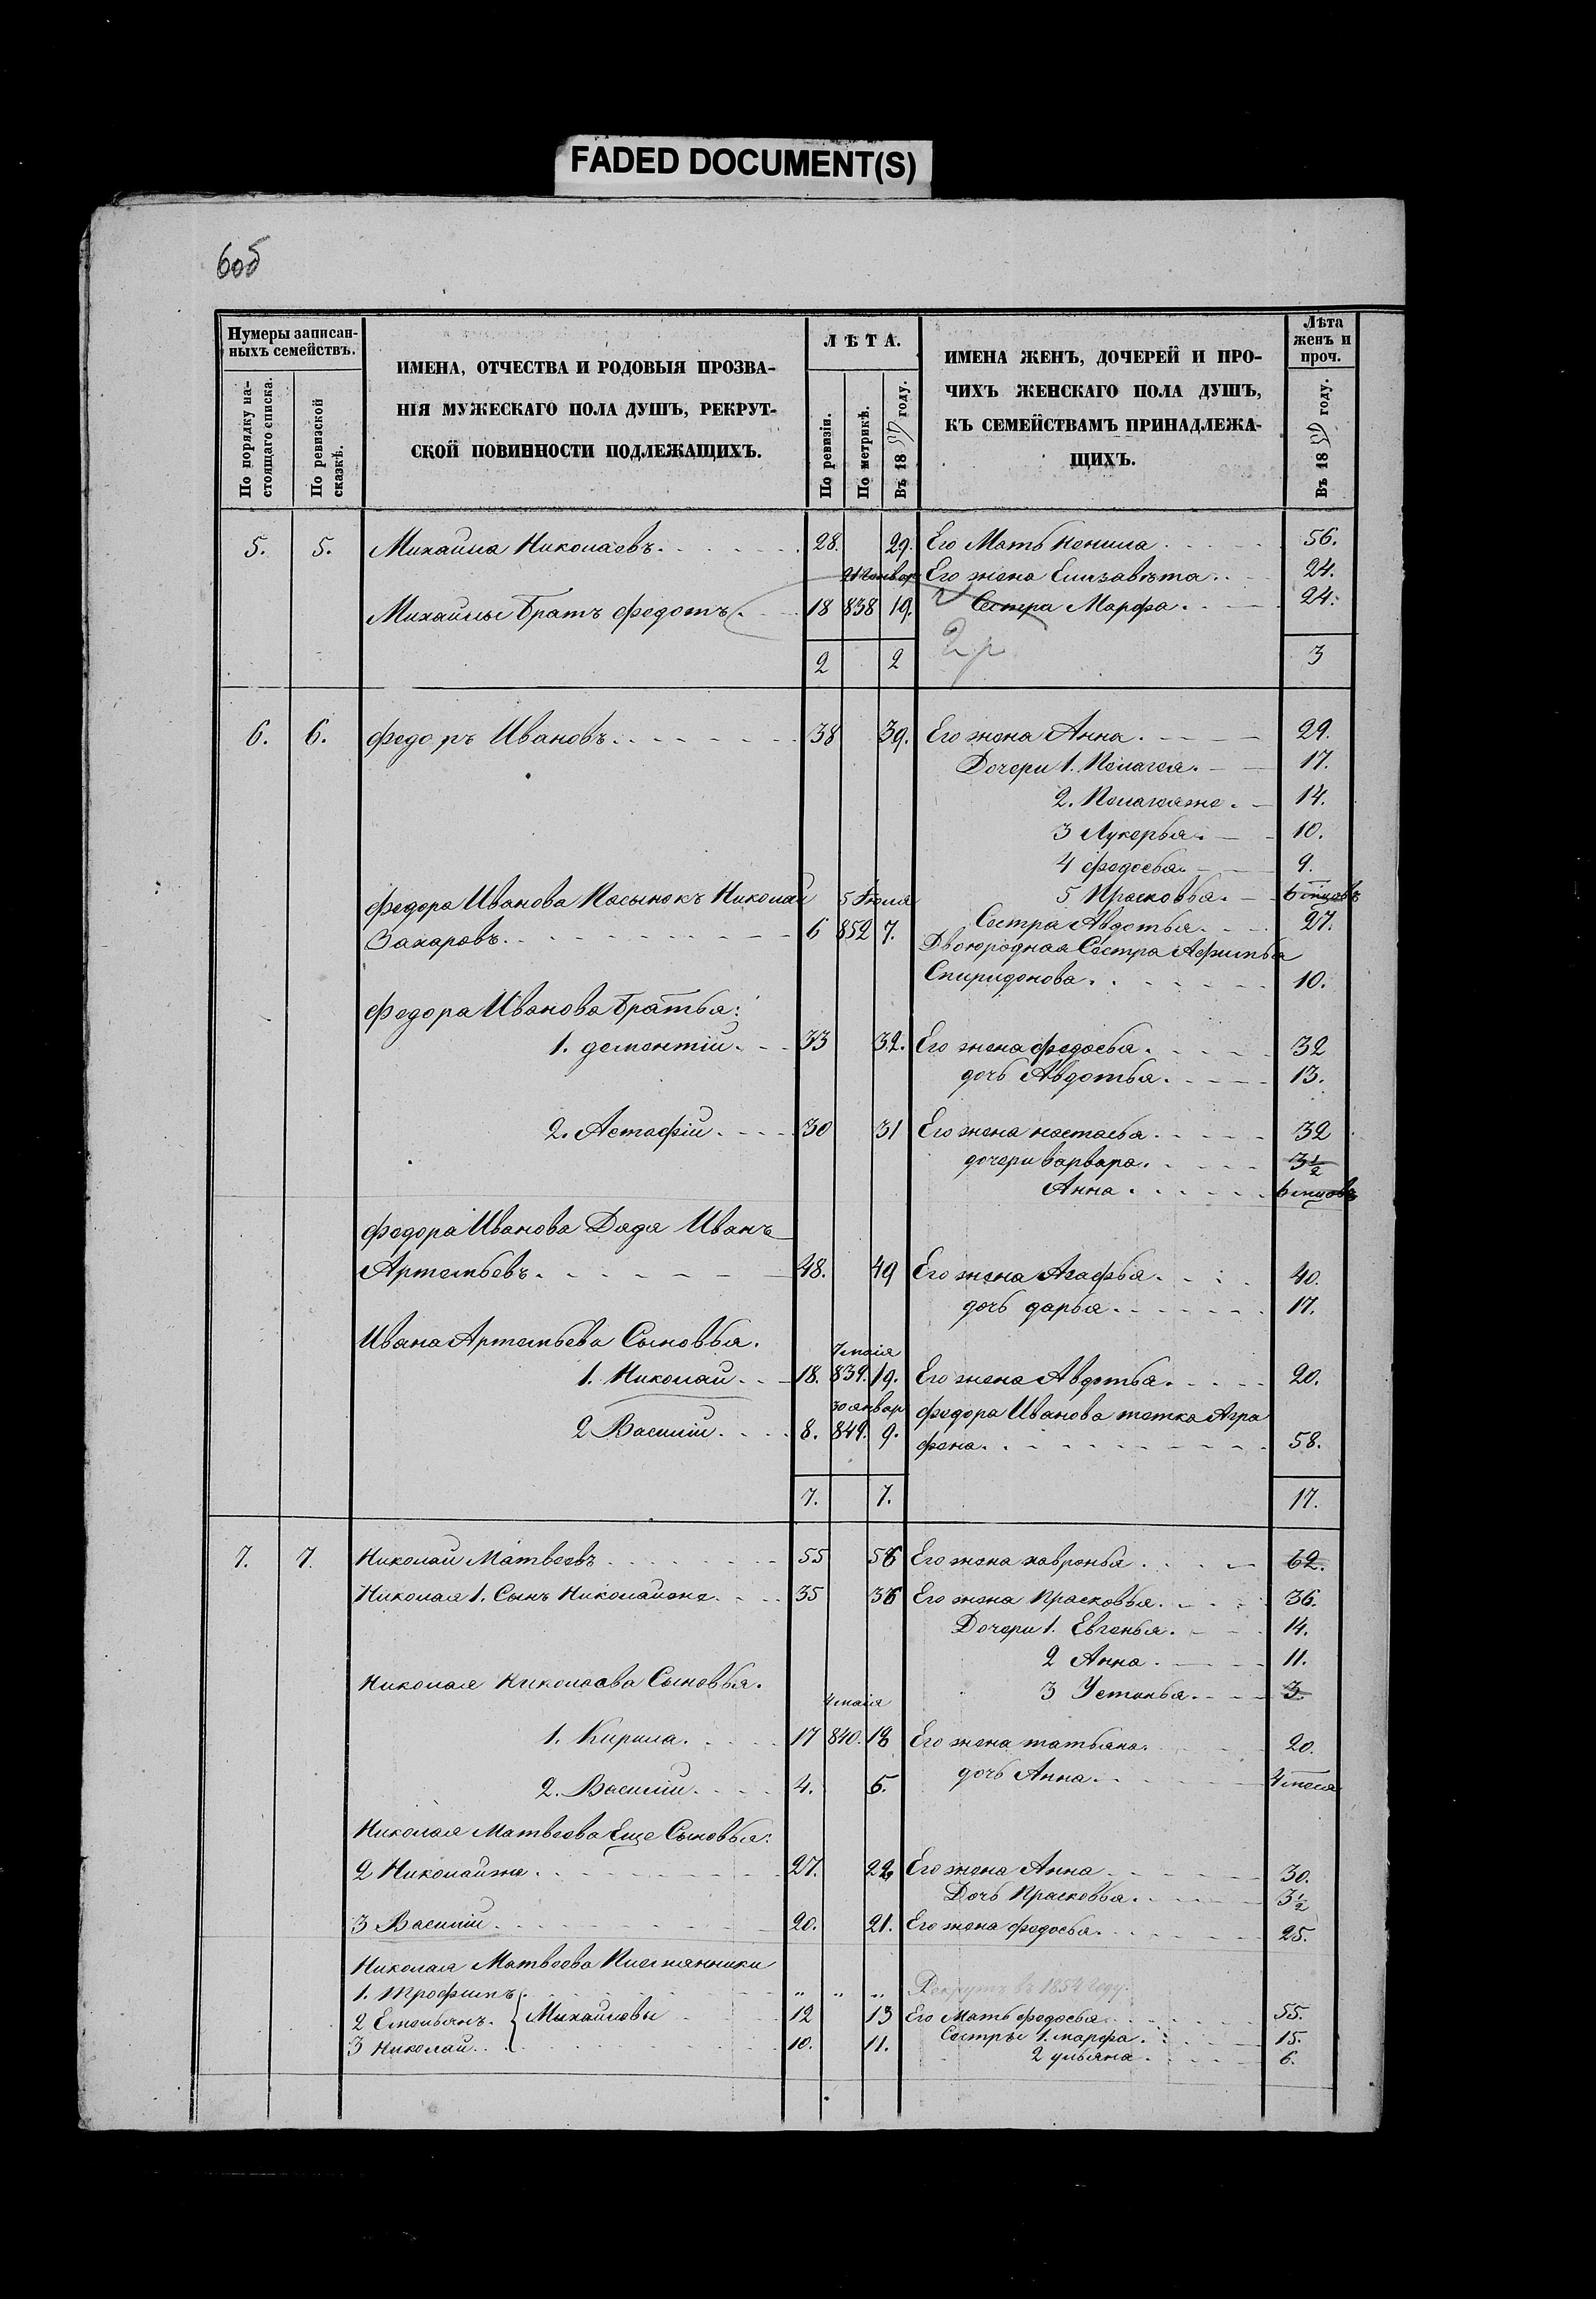 FADED DOCUMENT(S)
6об
Нумеры записан-
ныхъ семействъ.
По порядку на-
стоящаго списка.
По ревизской
сказкѣ.
ИМЕНА, ОТЧЕСТВА И РОДОВЫЯ ПРОЗВА-
НІЯ МУЖЕСКАГО ПОЛА ДУШЪ, РЕКРУТ-
СКОЙ ПОВИННОСТИ ПОДЛЕЖАЩИХЪ.
ЛѢТА.
По ревизіи.
По метрикѣ.
Въ 18 году.
ИМЕНА ЖЕНЪ, ДОЧЕРЕЙ И ПРО-
ЧИХЪ ЖЕНСКАГО ПОЛА ДУШЪ,
КЪ СЕМЕЙСТВАМЪ ПРИНАДЛЕЖА-
ЩИХЪ.
Лѣта
женъ и
проч.
Въ 18 году.
5. 5. Михайла Николаевъ. 28. 29. Его Мать Ненила 56.
Его жена Елизавѣта. 24.
Михайлы Братъ Федотъ 18 838 19. Сестра Марфа. 24.
2 2 3
2 р
6. 6. Федоръ Ивановъ. 38 39. Его жена Анна. 29.
Дочери 1. Пелагея. 17.
2. Пелагеяже. 14.
3 Лукерья. 10.
4 Федосья. 9.
5 Прасковья. 6 мцовъ
Федора Иванова Пасынокъ Николай 5 Июля
Захаровъ. 6 852 7. Сестра Авдотья. 27.
Двоюродная Сестра Афимья
Спиридонова. 10.
Федора Иванова Братья:
1. Дементій. 33 32. Его жена Федосья. 32
дочь Авдотья. 13.
2. Астафій. 30 31 Его жена Настасья. 32
дочери Варвара. 3½
Анна. 6 мцовъ
Федора Иванова Дядя Иванъ
Артемьевъ. 48. 49 Его жена Агафья. 40.
дочь Дарья. 17.
Ивана Артемьева Сыновья.
7 маія
1. Николай. 18. 839. 19. Его жена Авдотья. 20.
30 январ
2 Василій. 8. 849. 9. Федора Иванова тетка Агра
фена. 58.
7. 7. 17.
7. 7. Николай Матвеевъ 55 56 Его жена Хавронья. 62.
Николая 1. Сынъ Николайже. 35 36 Его жена Прасковья. 36.
Дочери 1. Евгенья. 14.
2 Анна. 11.
Николая Николаева Сыновья.
3 Устинья. 3.
4 маія
1. Кирила. 17 840. 18 Его жена Татьяна. 20.
2. Василій. 4. 5. дочь Анна.
Николая Матвеева Еще Сыновья:
2 Николайже. 27. Его жена Анна 30.
Дочь Прасковья. 3½
3 Василій. 20. 21. Его жена Федосья. 25.
Николая Матвеева Племянники
1. Трофимъ. " " " Рекрутъ въ 1854 году.
2 Емельянъ. Михайловы 12 13 Его Мать Федосья. 55.
3 Николай. 10. 11. Сестры 1. Марфа. 15.
2 Ульяна. 6.